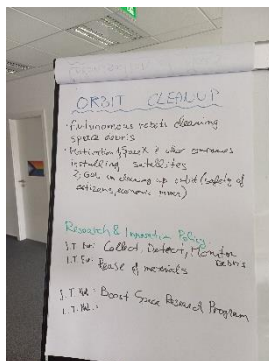 ORBIT CLEANUP
• Autonomous robots cleaning
space debris
• Motivation: SpaceX & other companies
installing satellites
→ Goal: cleaning up orbit (safety of
citizens, economic
Research & Innovation Policy
S.T. Collect, Detect, Monitor
Debris
L.T. Reuse of materials
S.T. Boost Space Research Program
L.T.